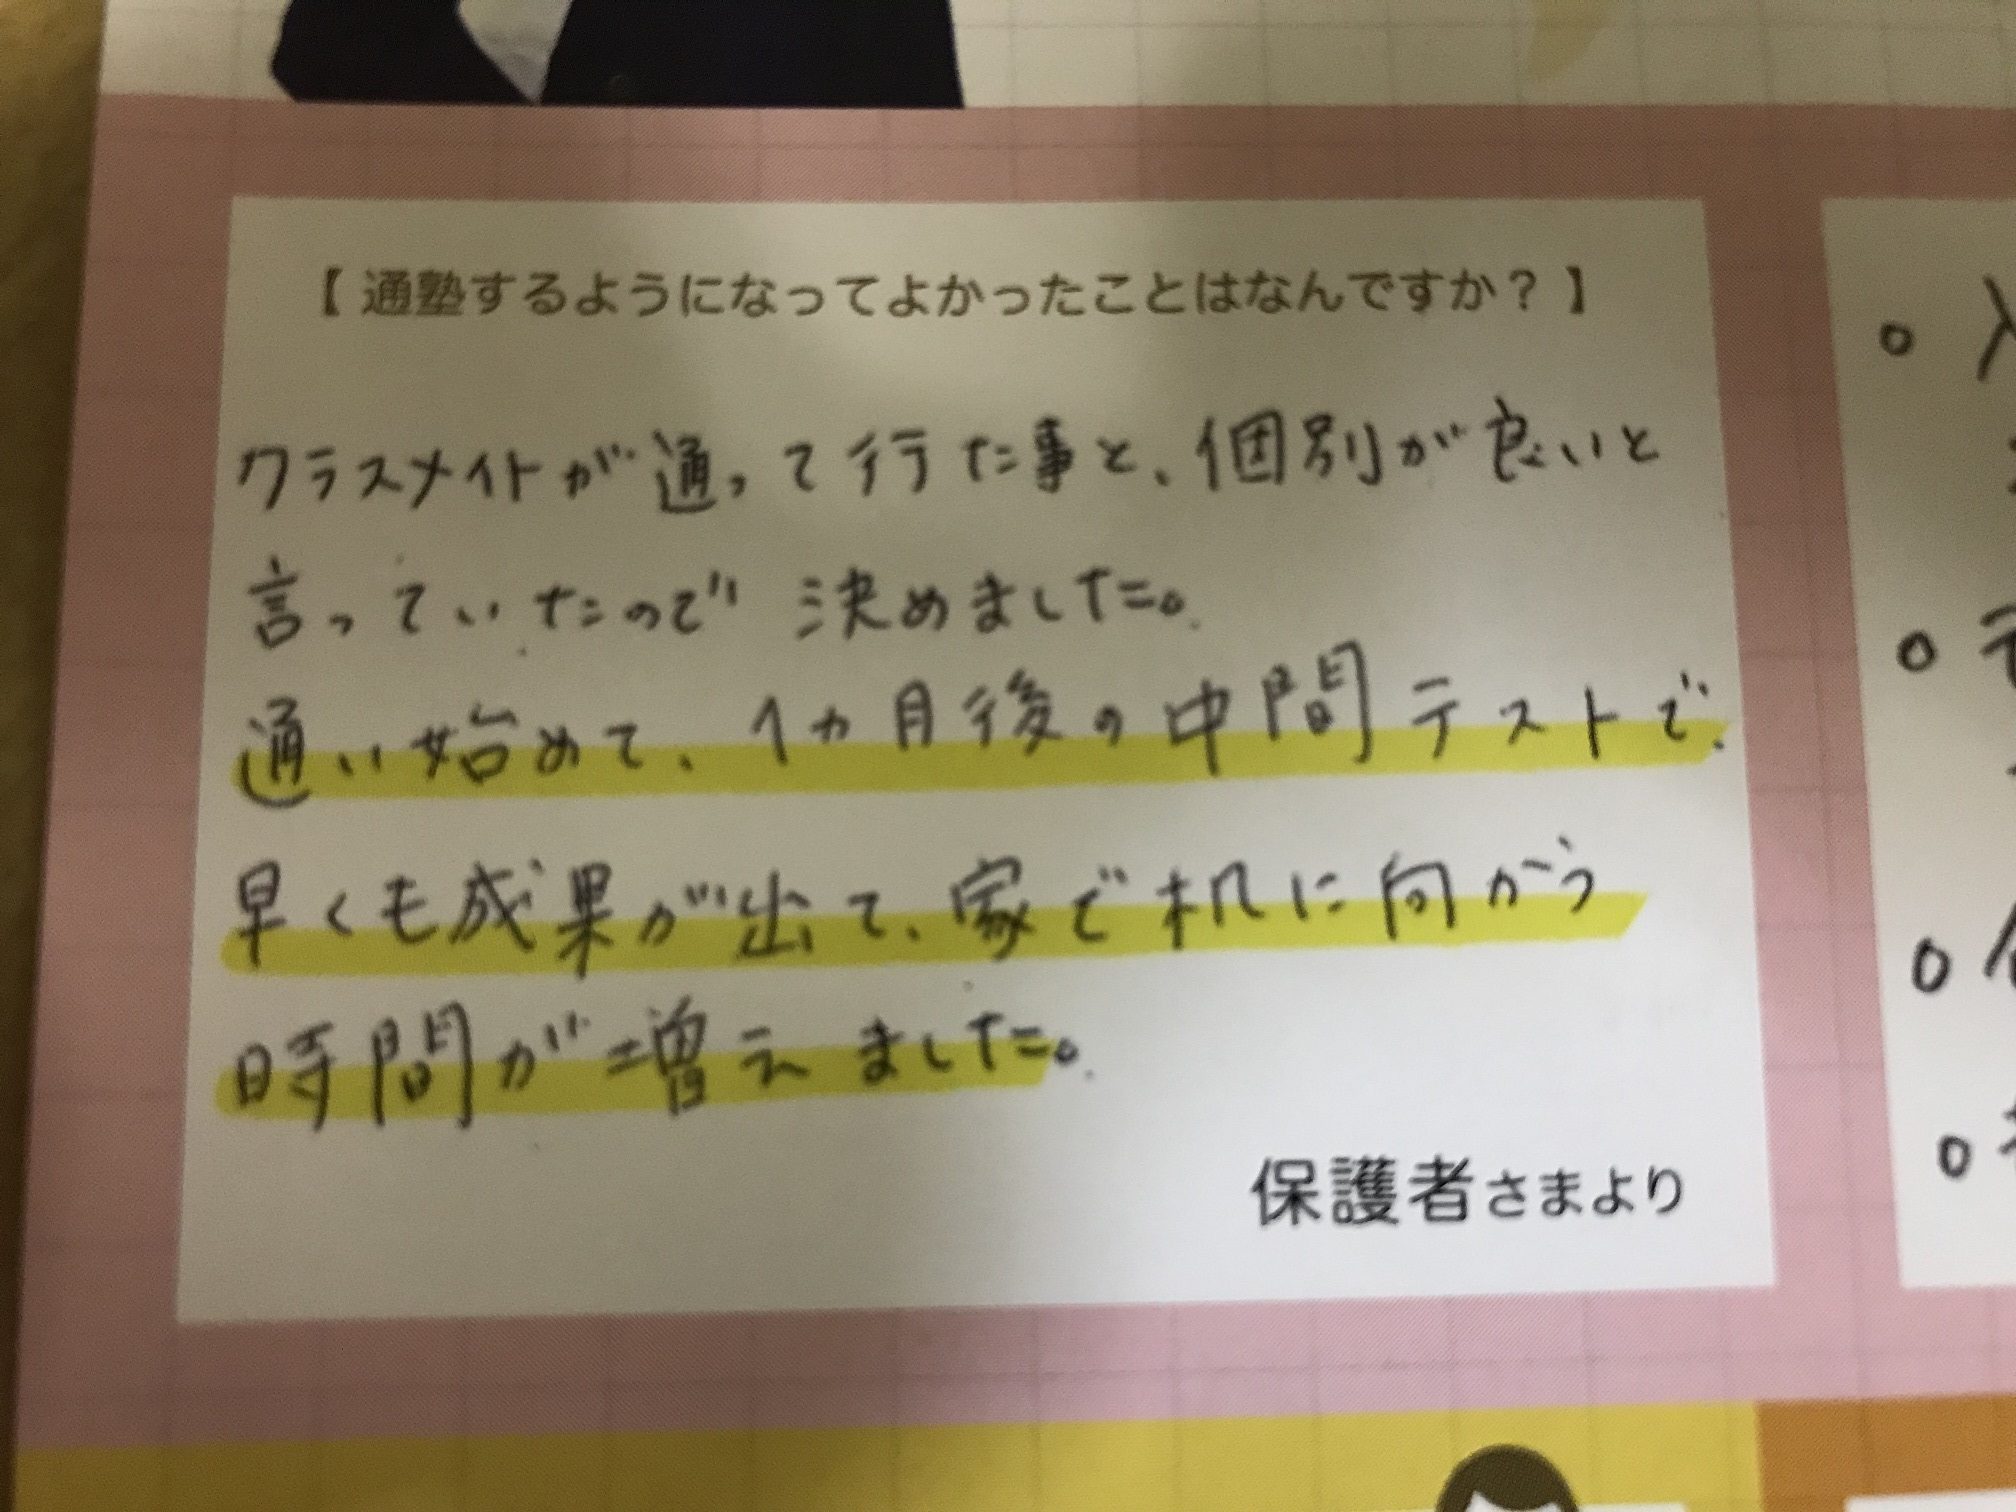 【 通塾するようになってよかったことはなんですか？ 】
クラスメイトが通って行た事と、個別が良いと
言っていたので 決めました。
通い始めて、1ヵ月後の中間テストで、
早くも成果が出て、家で机に向がう
時間が増えました。
保護者さまより